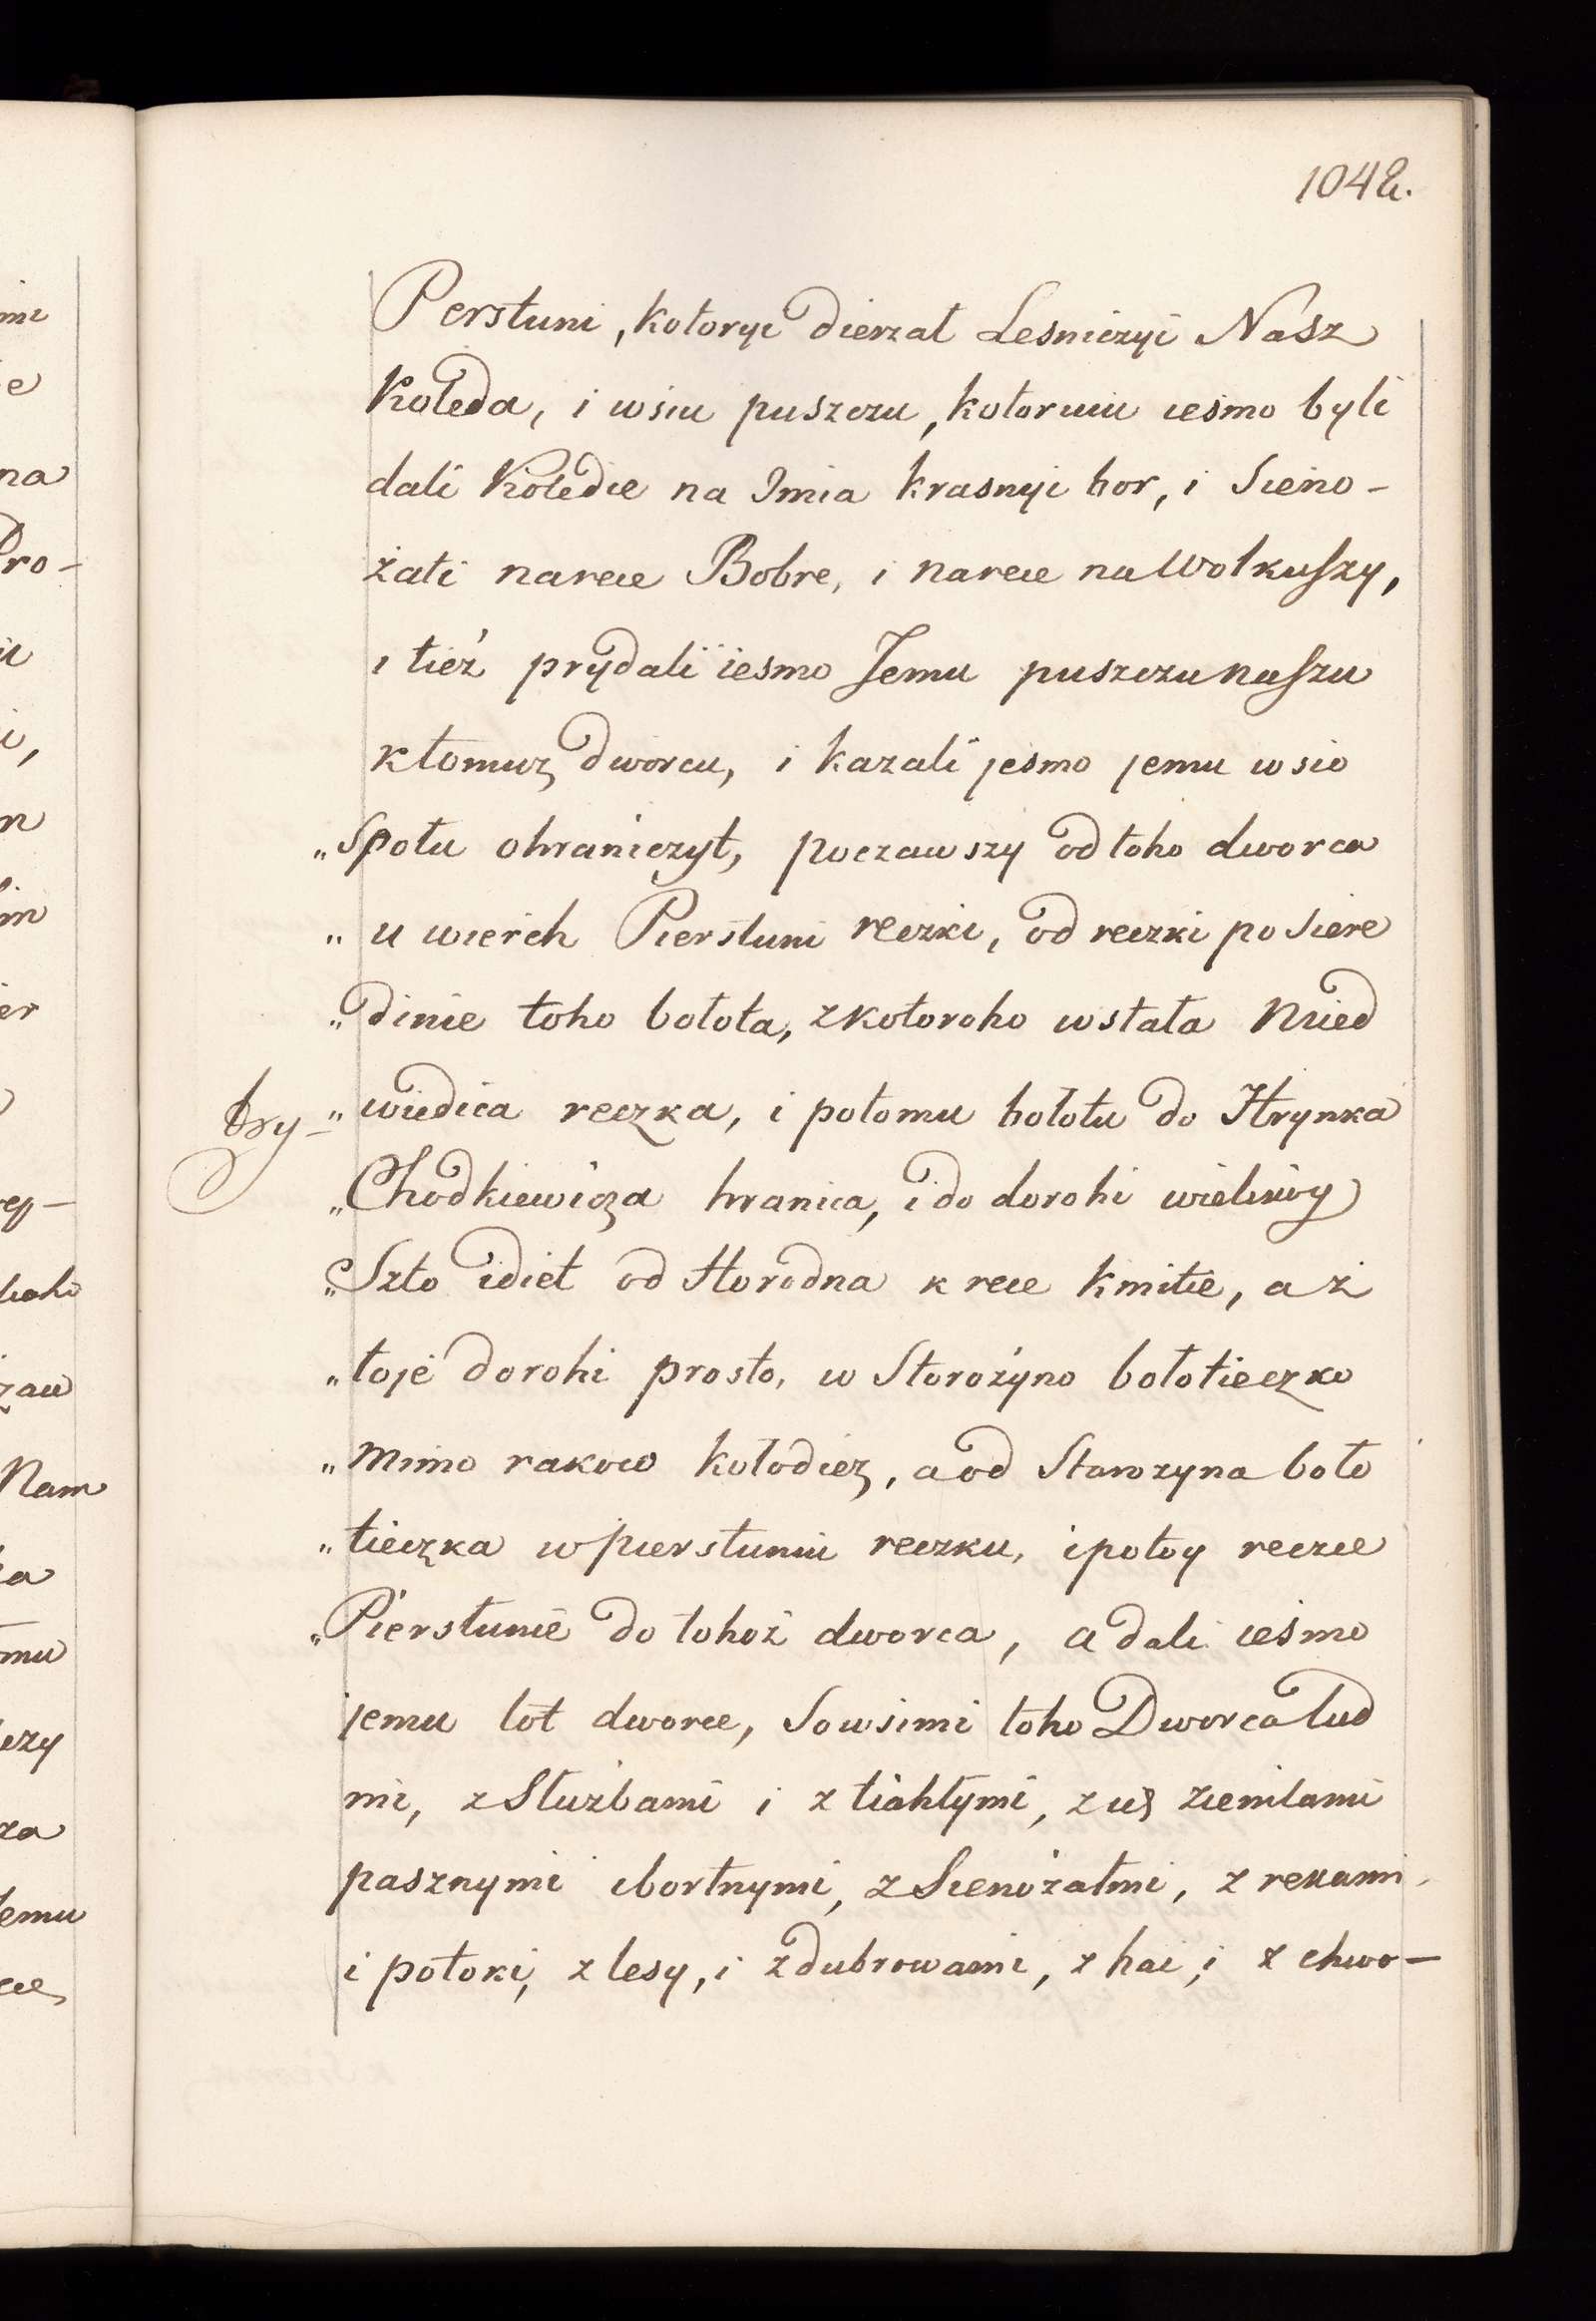 1042.
Perstuni, kotoryi dierzal Lesniczyi Nasz
Koleda, i wsiu puszczu, kotoruiu iesmo byli
dali Koledie na Imia krasnyi hor, i Sieno-
żati narece Bobre, i narece na Wolkuszy,
i tież prydali iesmo Jemu puszczu naszu
ktomuz dworcu, i kazali jesmo jemu wsio
„Spotu ohraniczyt, poczawszy od toho dworca
„u wierch Pierstuni reczki, od reczki po Siere
„dinie toho bołota, zkotoroho wstała Nied
try- „wiedica reczka, i potomu bołotu do Hrynka
„Chodkiewicza hranica, i do dorohi wielikoy
„Szto idiet od Horodna k rece kmitie, a ż
„toje dorohi prosto, w Storożyno bołotieczko
„mimo rakow kołodiez, a od Starozyna boło
„tieczka w pierstuniu reczku, ipotoy reczce
„Pierstunie do tohoż dworca, a dali ieśmo
jemu tot dworec, Sowsimi toho Dworca lud
mi, z Służbami i z tiahłymi, z us ziemlami
pasznymi ibortnymi, z Sienożatmi, z rekami
i potoki, z lesy, i z dubrowami, z hai, i z chwo-